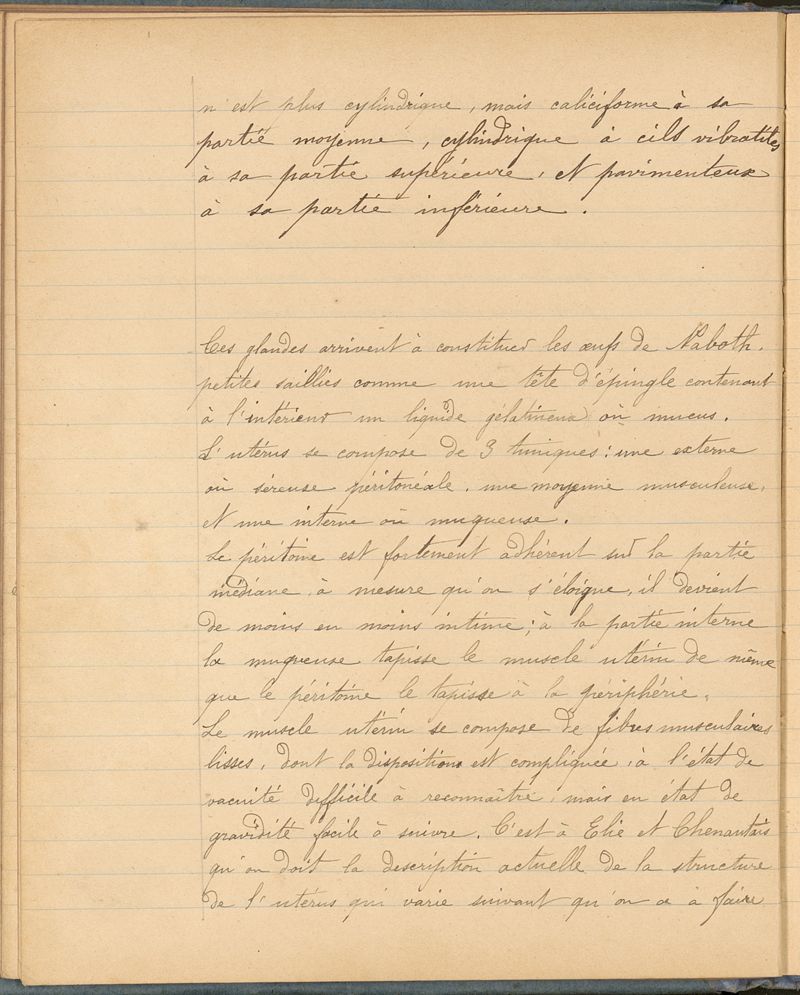 n'est plus cylindrique, mais caliciforme à sa
partie moyenne, cylindrique à cils vibratiles
à sa partie supérieure, et pavimenteux
à sa partie inférieure.
Ces glandes arrivent à constituer les œufs de Naboth,
petites saillies comme une tête d'épingle contenant
à l'intérieur un liquide gélatineux où mucus.
L'utérus se compose de 3 tuniques : une externe
où séreuse péritonéale, une moyenne musculeuse,
et une interne où muqueuse.
Le péritoine est fortement adhérent sur la partie
médiane, à mesure qu'on s'éloigne, il devient
de moins en moins intime ; à la partie interne
la muqueuse tapisse le muscle utérin de même
que le péritoine le tapisse à la périphérie.
Le muscle utérin se compose de fibres musculaires
lisses, dont la disposition est compliquée, à l'état de
vacuité difficile à reconnaître, mais en état de
gravidité facile à suivre. C'est à Elie et Chenantais
qu'on doit la description actuelle de la structure
de l'utérus qui varie suivant qu'on a à faire